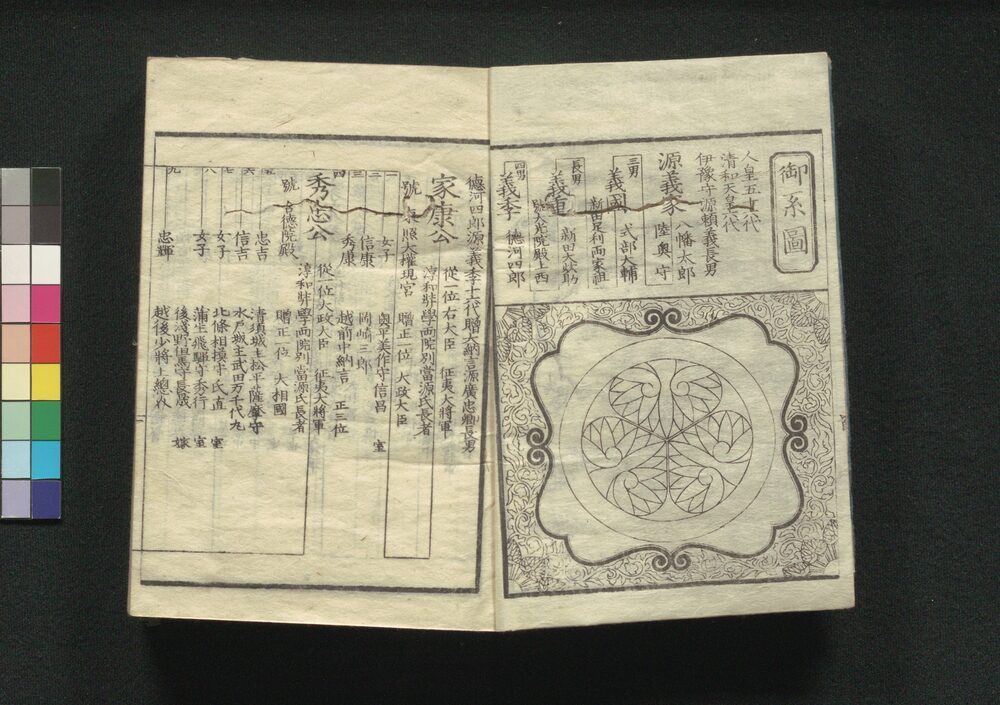 御系圖
人皇五十六代
清和天皇六代
伊豫守源頼義長男
源義家 八幡太郎
陸奥守
三男
義國 式部大輔
新田足利両家祖
長男
義重 新田大炊助
號大光院殿上西
四男
義季 徳河四郎
徳河四郎源義季十六代贈大納言源廣忠卿長男
家康公 從一位右大臣 征夷大将軍
淳和弉學両院別當源氏長者
號東照大權現宮 贈正一位 大政大臣
一 女子 奥平美作守信昌 室
二 信康 岡崎三郎
三 秀康 越前中納言 正三位
四
秀忠公 從一位大政大臣 征夷大将軍
淳和弉學両院別當源氏長者
號台徳院殿 贈正一位 大相國
五 忠吉 清須城主松平薩摩守
六 信吉 水戸城主武田万千代丸
七 女子 北條相摸守氏直 室
八 女子 蒲生飛騨守秀行 室
後淺野但馬守長晟 嫁
九 忠輝 越後少将上總介